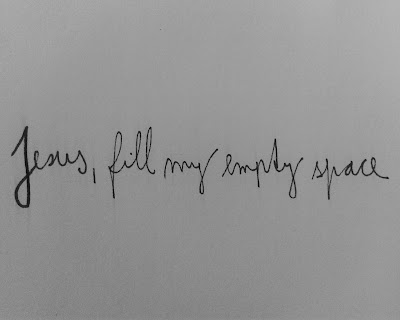 Jesus, fill my empty space